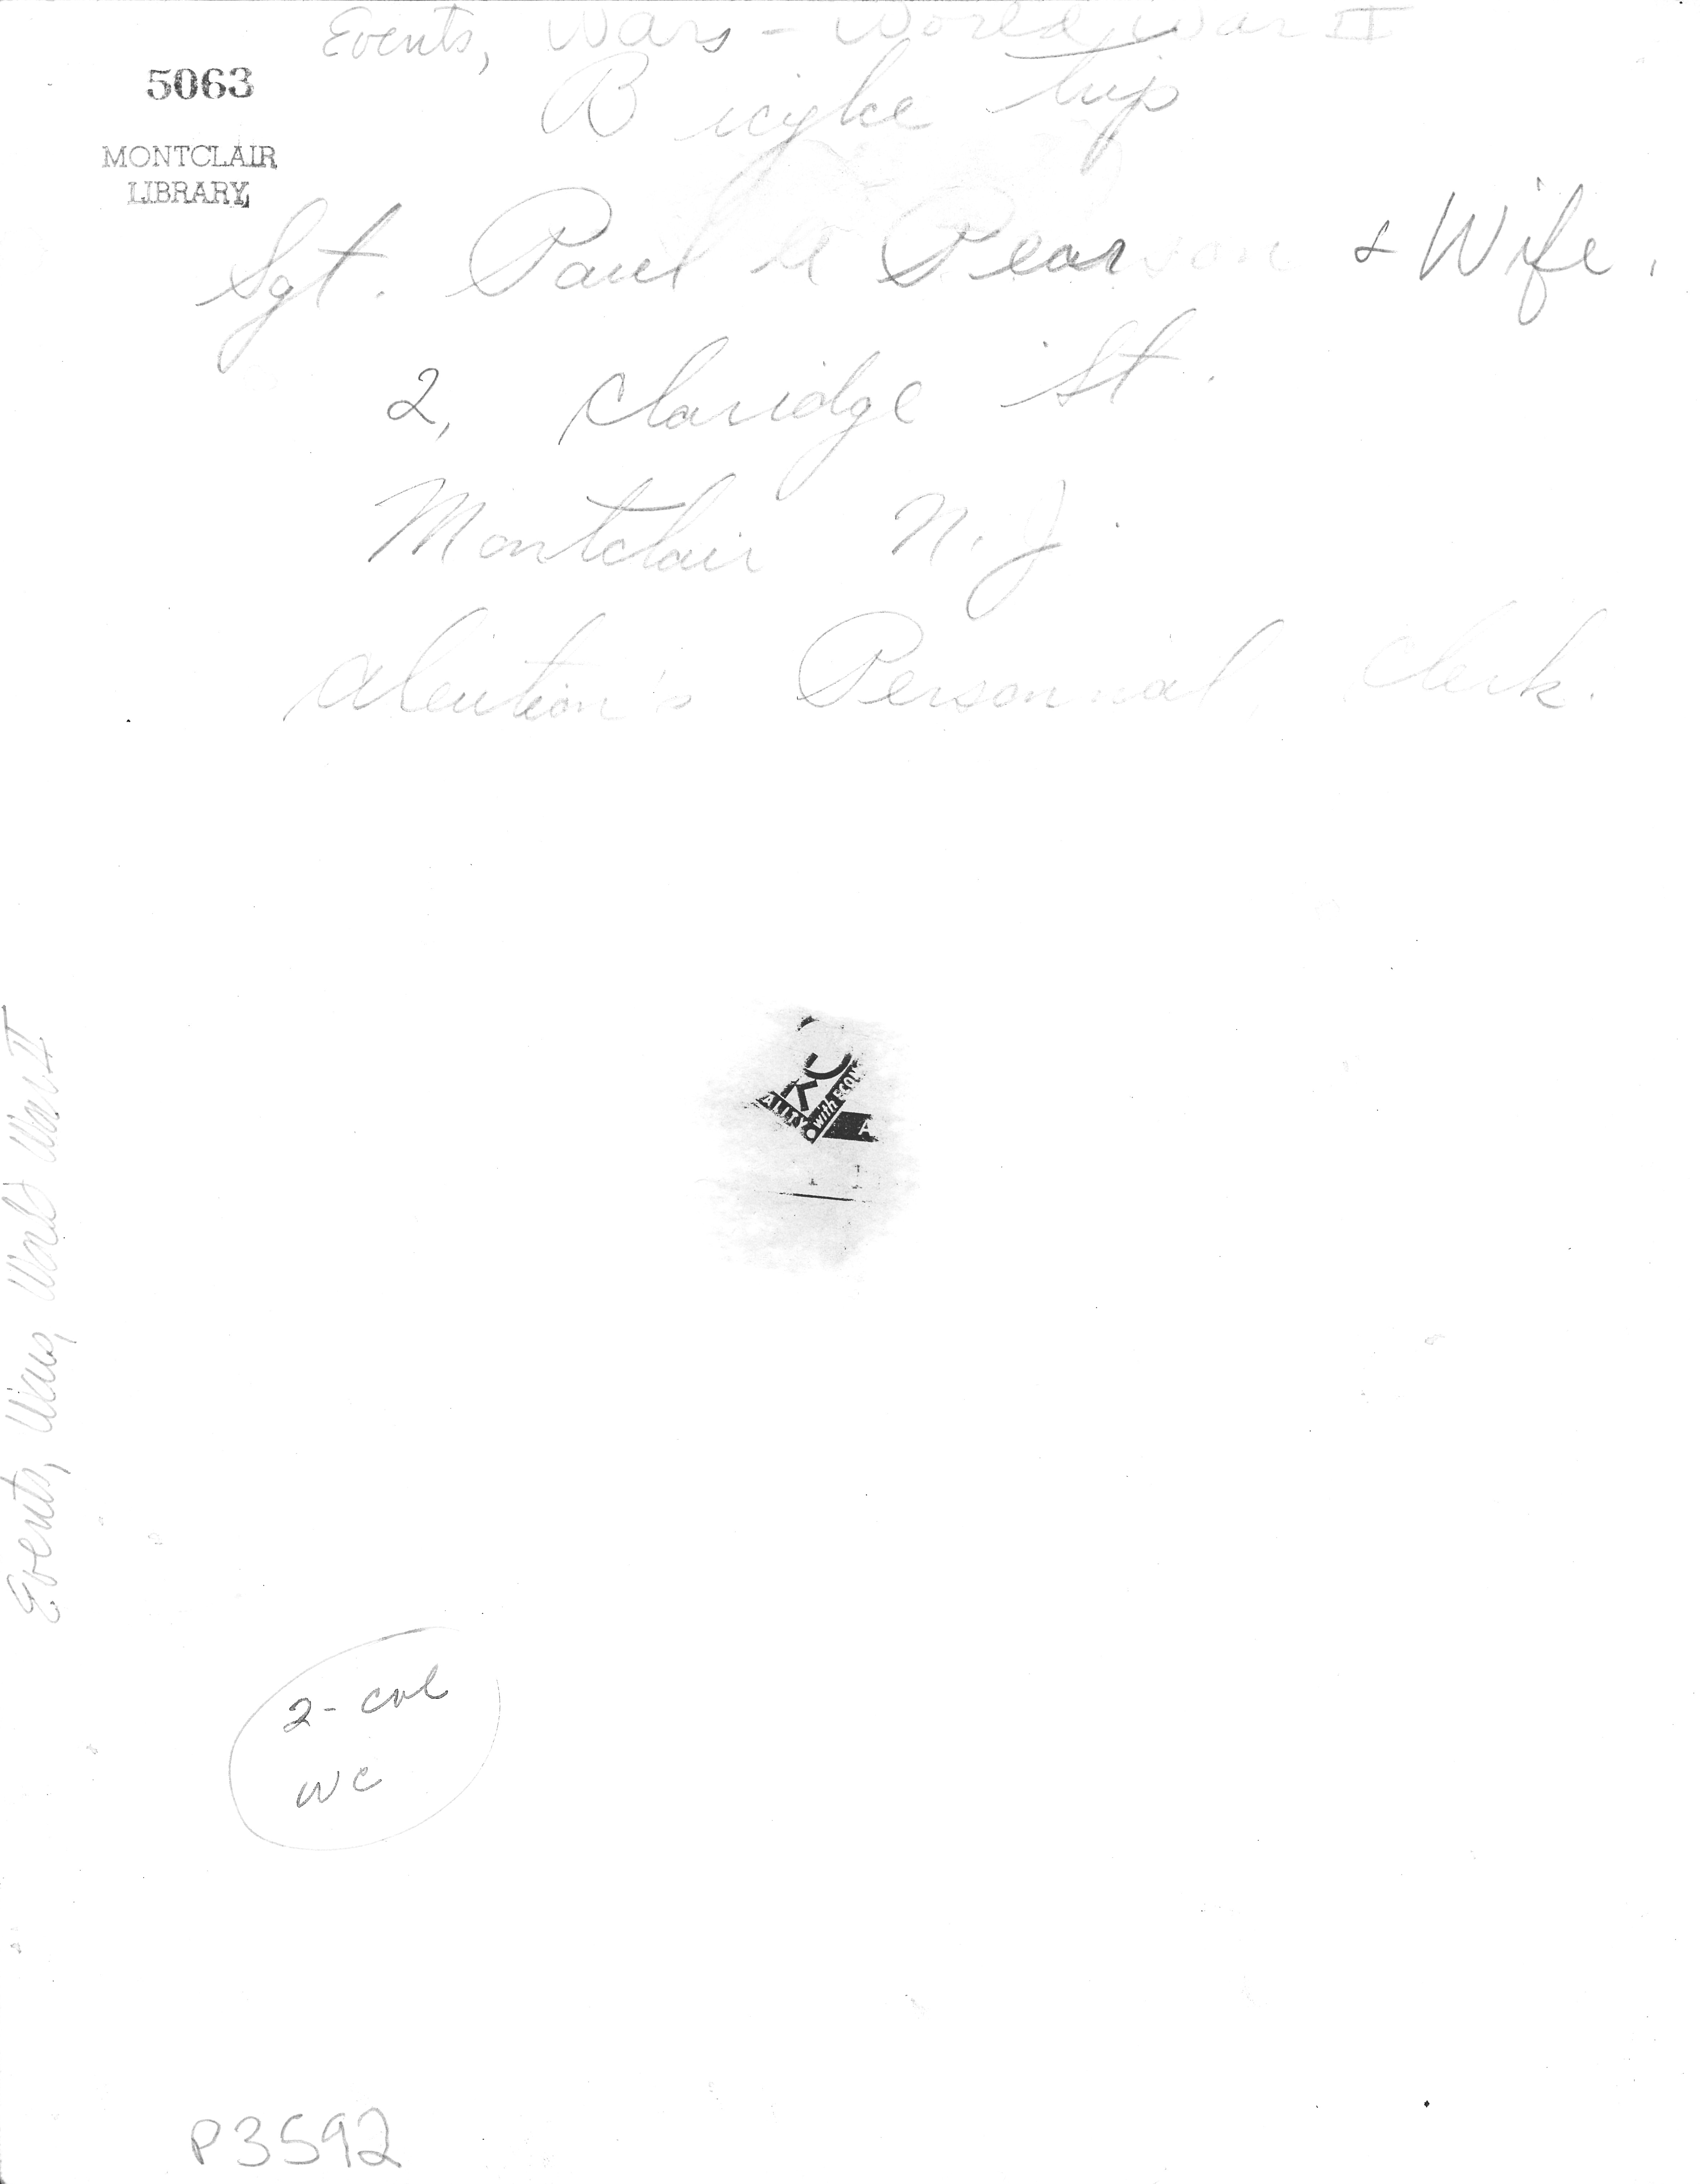 Events, Wars - World War II
5063
Bicylce trip
MONTCLAIR
LIBRARY
Sgt. Paul Pearson & Wife.
2, Claridge St.
Montclair N. J.
Aleution's Personnal Clerk.
ALITY with ECON
A
Events, Wars, World War II
2 - col
WC
P3592